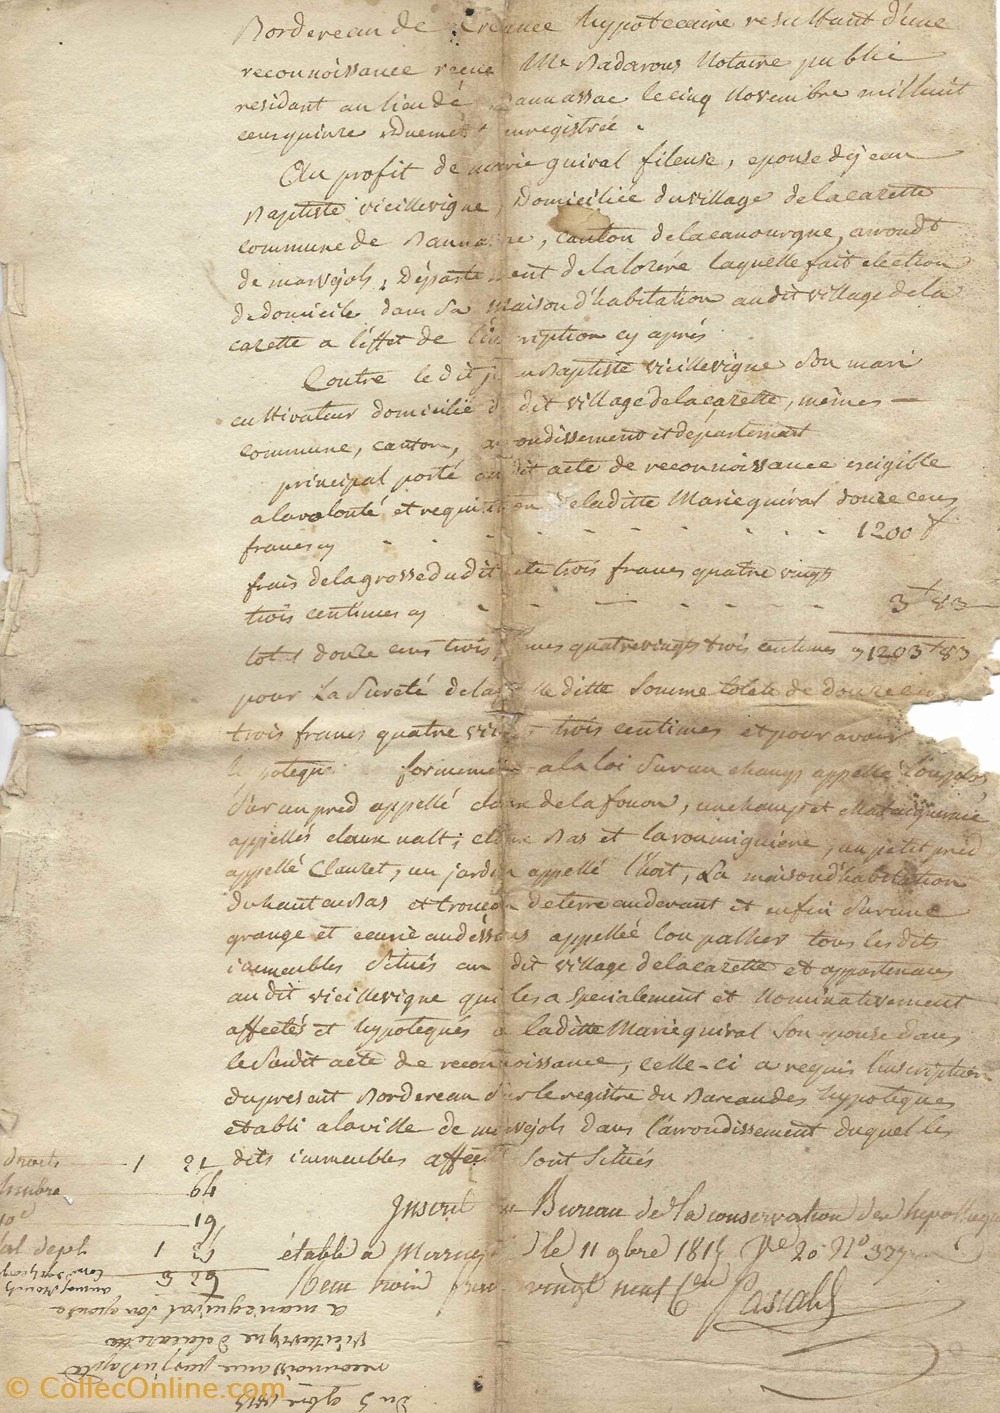 Bordereau de Creance hypotecaire resultant d'une
reconnoissance recue Me Badarous Notaire public
residant au lieu de Bannassac le cinq Novembre mil huit
cens quinze duement enregistrée.
Au profit de marie quiral fileuse, epouse de jean
Baptiste vieillevigne, Domiciliée du village de la cazette
commune de Bannassac, canton de la canourgue, arrondt
de marvejols, Département de la lozére laquelle fait election
de domicile dans sa maison d'habitation au dit village de la
cazette a l'éffet de l'inscription cy aprés
Contre le dit jean Baptiste vieillevigne Son mari
cultivateur domicilié du dit village de la cazette, mêmes
commune, canton, arrondissement et département
principal porté au dit acte de reconnoissance exigible
a la volonté et requisition de la ditte Marie quiral douze cens
francs cy 1200 f
frais de la grosse du dit acte trois francs quatre vingts
trois centimes cy 3f 83
total douze cens trois francs quatre vingts trois centimes cy 1203f 83
pour La Sureté de la ditte Somme totale de douze cens
trois francs quatre vingt trois centimes et pour avoir
hypoteque formement a la loi Sur un champ appellé
Sur un pred appellé claux de la fouon, un champ et
appellés claux nalt, claux Bas et la roumiguiere, un petit pred
appellé Clauzet, un jardin appellé l'hort, La maison d'habitation
du haut au Bas et de terre au devant et enfin Sur une
grange et ecurie au déssous appellée lou palhier tous les dits
immeubles Situés au dit village de la cazette et appartenans
au dit vieillevigne qui les a Specialement et Nominativement
affectés et hypotequés a la ditte Marie quiral Son epouse dans
le Susdit acte de reconnoissance, celle-ci a requis l'inscription
du present Bordereau Sur le registre du Bureau des hypoteques
etabli a la ville de marvejols dans l'arrondissement duquel les
dits immeubles affectés Sont Situés
droits 1 21
timbre 64
19
Sal depl 1 25
Inscrit au Bureau de la conservation des hypotheques
établi à Marvejols le 11 9bre 1815 No 20 No 377
vingt neuf Cen
Pascal
Du 5 9bre 1815
reconnoissance par jn Baptte
vieillevigne de la cazette
a marie quiral Son epouse
© CollecOnline.com